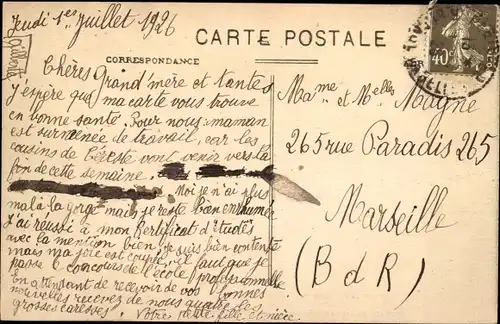 Jeudi 1er Juillet 1926
CARTE POSTALE
CORRESPONDANCE
40c
Chères Grand'mère et tantes
J'espère que ma carte vous trouve
en bonne santé. Pour nous, maman
est surmenée de travail, car les
cousins de Céreste vont venir vers la
fin de cette semaine.
Moi je n'ai plus
mal à la gorge mais je reste bien enrhumée
J'ai réussi à mon Certificat d'Etudes
avec la mention bien, je suis bien contente
mais ma joie est coupée, il faut que je
passe le concours de l'école professionnelle
en attendant de recevoir de vos bonnes
nouvelles recevez de nous quatre les
grosses caresses. Votre petite fille et nièce
Mame et Melles Magne
265 rue Paradis 265
Marseille
(B d R)